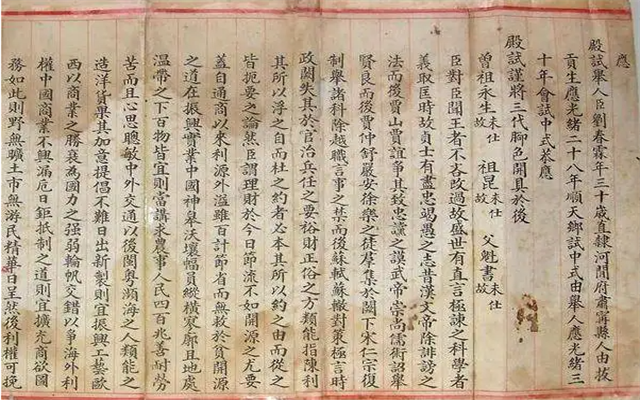 應
殿試舉人臣劉春霖年三十歲直隸河間府肅寧縣人由拔
貢生應光緒二十八年順天鄉試中式由舉人應光緒三
十年會試中式恭應
殿試謹將三代腳色開具於後
曾祖永生未仕故 祖昆未仕故 父魁書未仕故
臣對臣聞王者不吝改過故盛世有直言極諫之科學者
義取匡時故貞士有盡忠竭愚之志昔漢文帝除誹謗之
法而後賈山賈誼爭其致忠讜之謨武帝崇尚儒術詔舉
賢良而後賈仲舒嚴安徐樂之徒群集於闕下宋仁宗復
制舉諸科除越職言事之禁而後蘇軾蘇轍對策極言時
政闕失其於官治兵任之要裕財正俗之方類能指陳利
其所以浮之自而杜之約者必本其所以約之由而從之
皆扼要之論然臣謂理財於今日節流不如開源之尤要
蓋自通商以來利源外溢雖百計節省而無救於貧開源
之道在振興實業中國神皋沃壤幅員縱橫寥廓且地處
溫帶之下百物皆宜則當講求農事人民四百兆善耐勞
苦而且心思聰敏中外交通以後閩粵瀕海之人類能之
造洋貨果其加意提倡不難日出新製則宜振興工藝歐
西以商業之勝衰為國力之强弱輪帆交錯以爭海外利
權中國商業不興漏卮日鉅抵制之道則宜擴充商欲圖
務如此則野無曠土市無游民精華日呈然後利權可挽